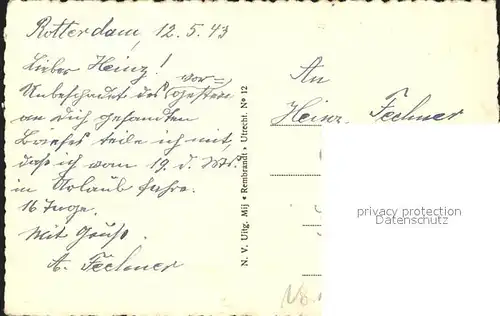 Rotterdam, 12.5.43
Lieber Heinz!
Unbeschadet des vor=
gestern
an Dich gesandten
Briefes teile ich mit,
daß ich vom 19. d. Mts.
in Urlaub fahre.
16 Tage.
Mit Gruß.
A. Fechner
N. V. Uitg. Mij • Rembrandt • Utrecht. No 12
An
Heinz Fechner
privacy protection
Datenschutz